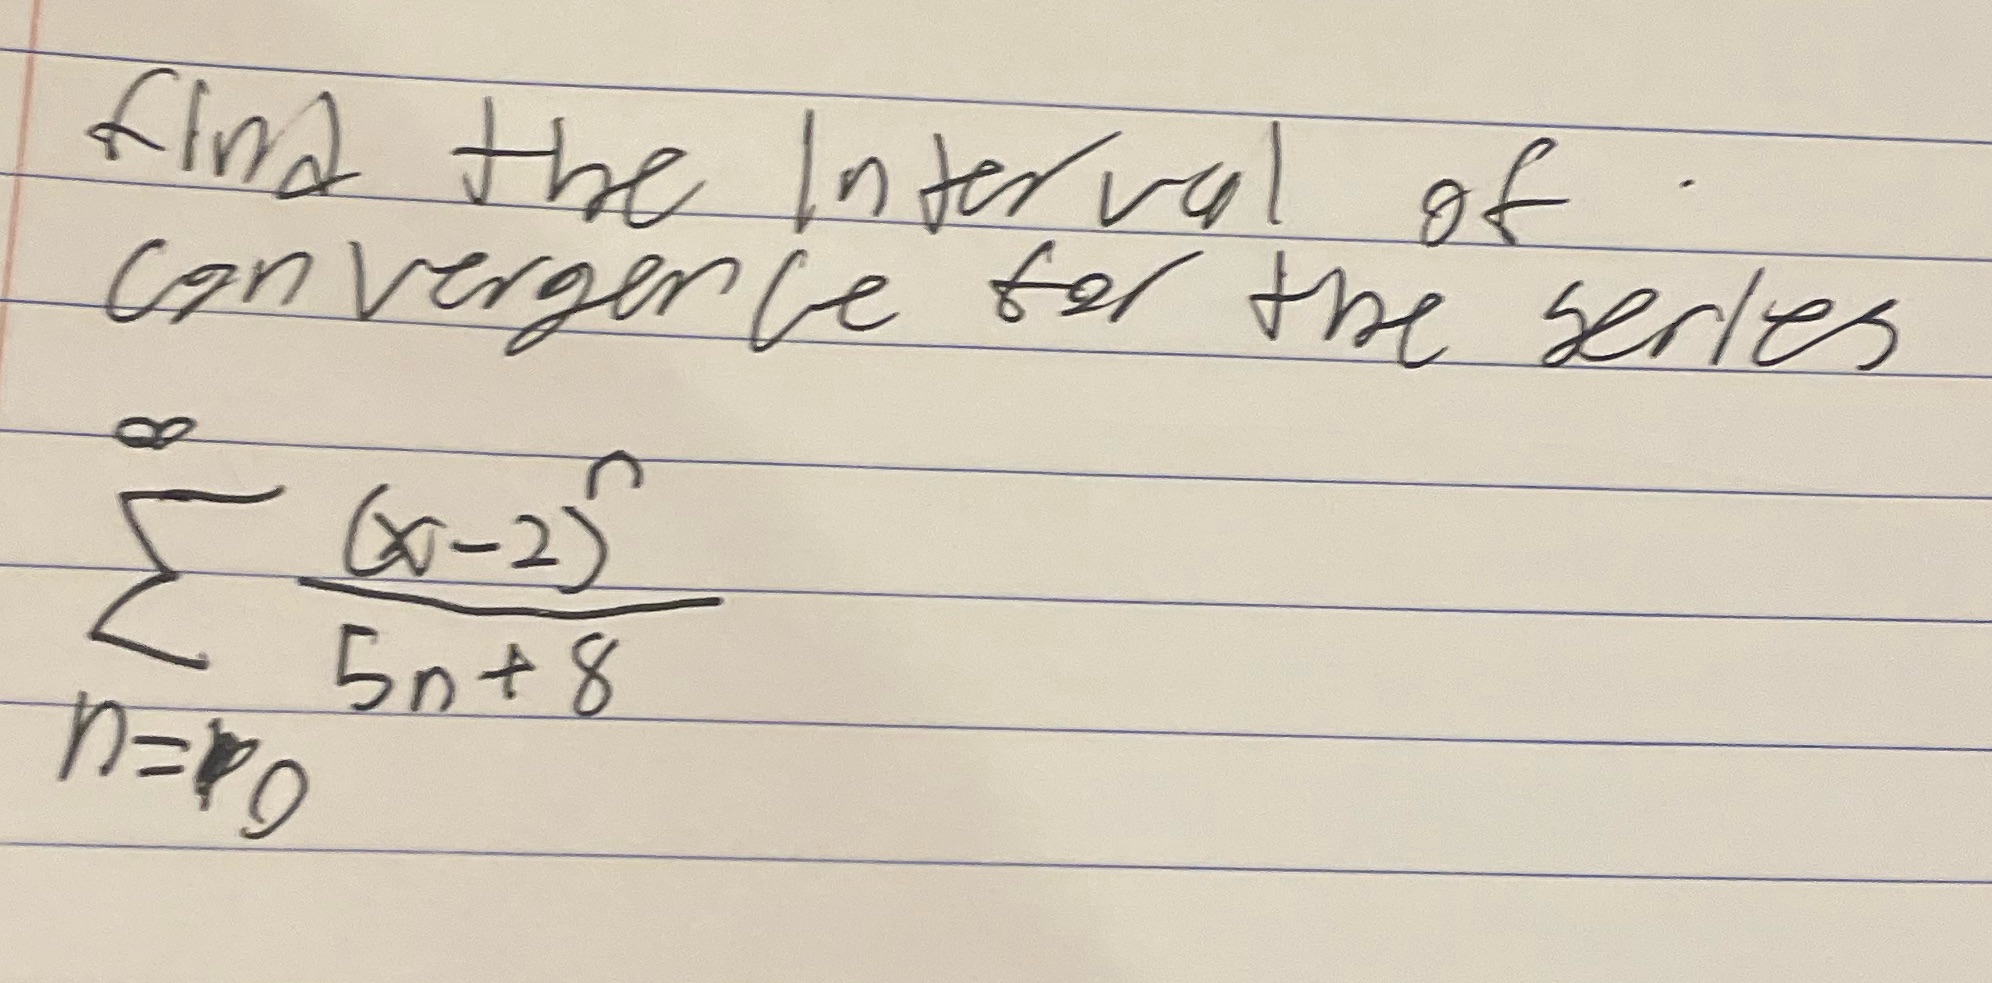 find the interval of
convergence for the series
∞
∑ (x-2)^n / 5n+8
n=0